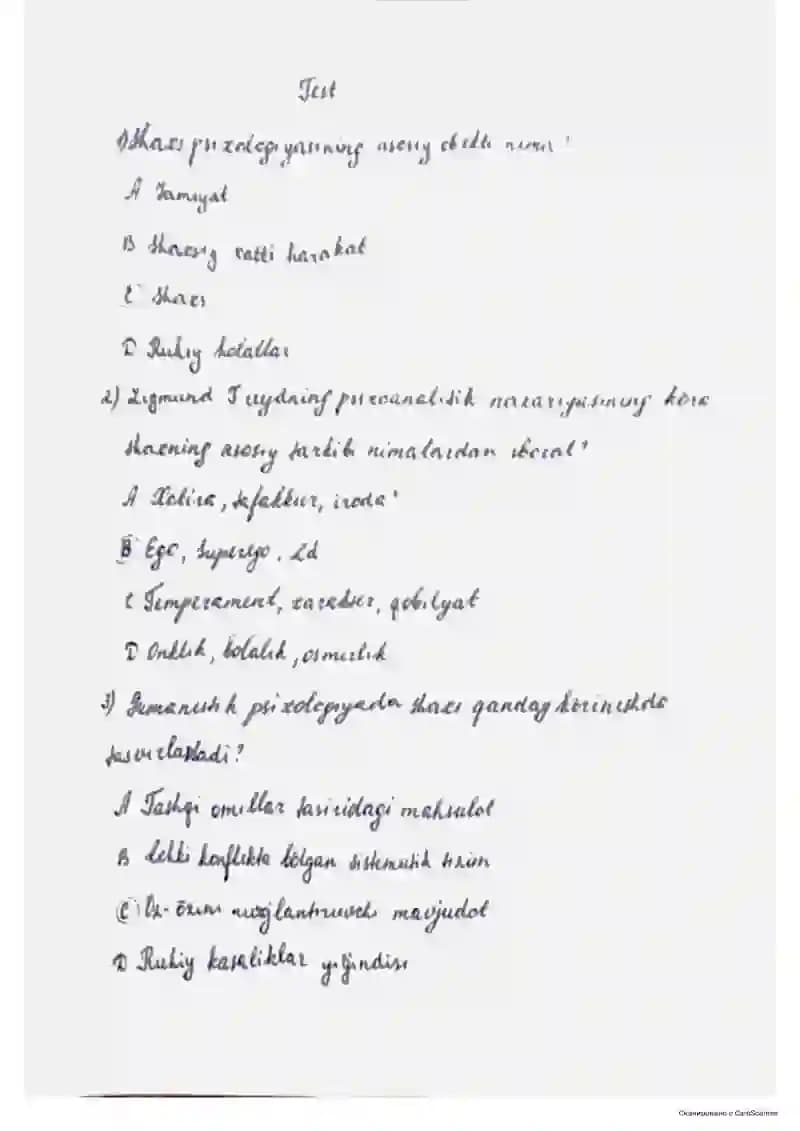 Test
1) Shaxs psixologiyasining asosiy obekti nima?
A Jamiyat
B Shaxsiy xatti harakat
C Shaxs
D Ruhiy holatlar
2) Zigmund Freydning psixoanalitik nazariyasining köra
shaxsning asosiy tarkibi nimalardan iborat?
A Xotira, tafakkur, iroda
B Ego, Superego, Id
C Temperament, xarakter, qobilyat
D Onklik, bolalik, osmirlik
3) Gumanistik psixologiyada shaxs qanday körinishda
tasvirlanadi?
A Tashqi omillar tasiridagi mahsulot
B Ichki konflikta bölgan sistematik tizim
C Öz-özini rivojlantiruvchi mavjudot
D Ruhiy kasaliklar yiğindisi
Сканировано с CamScanner